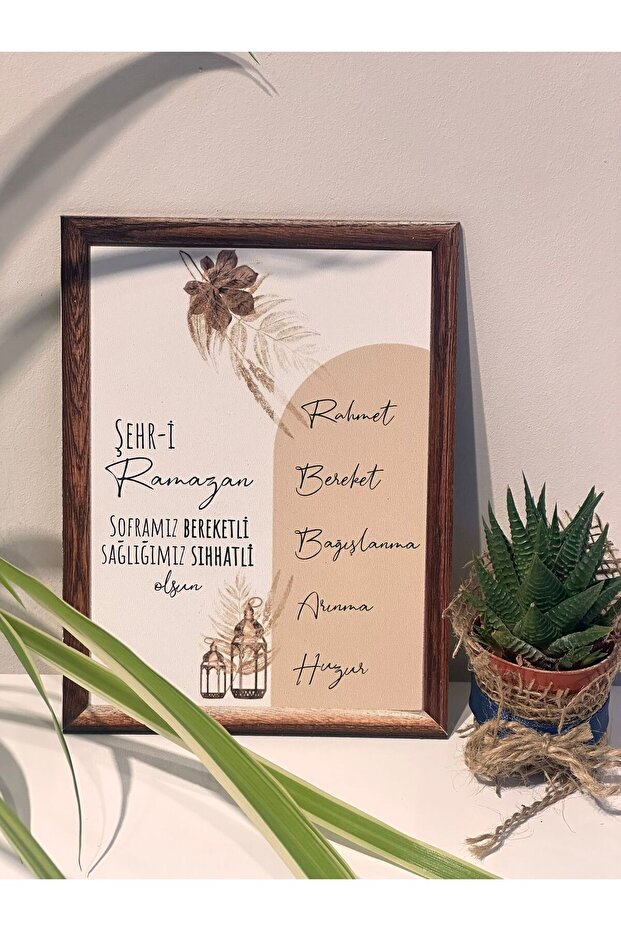 ŞEHR-İ
Ramazan
SOFRAMIZ BEREKETLİ
SAĞLIĞIMIZ SIHHATLİ
olsun
Rahmet
Bereket
Bağışlanma
Arınma
Huzur